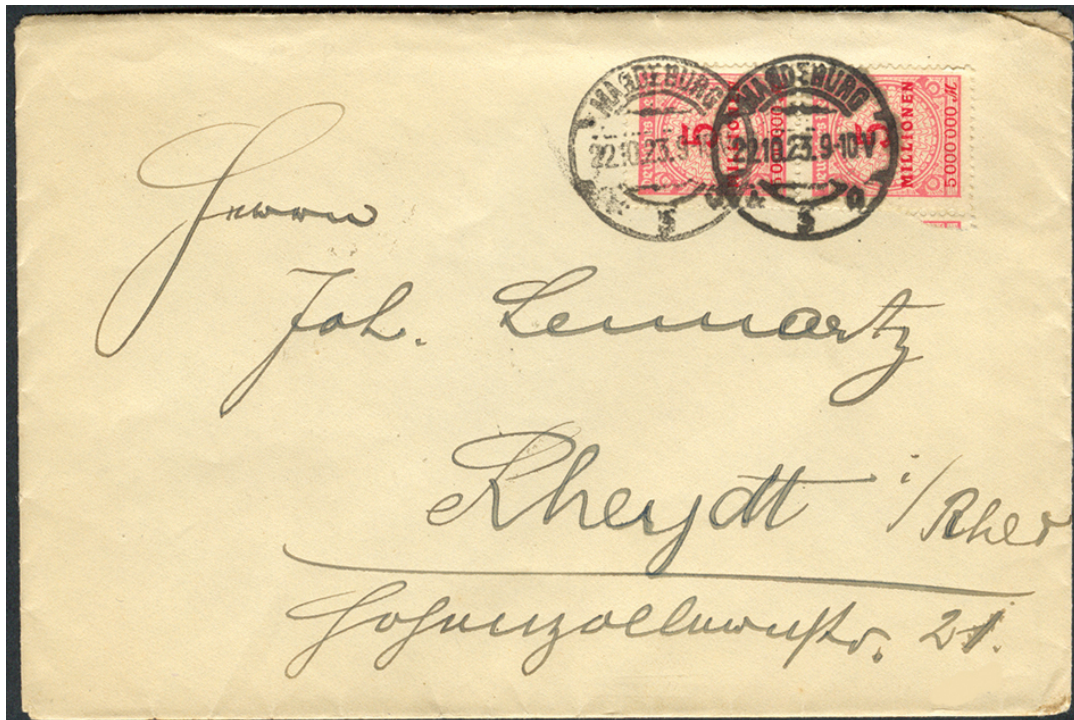 MAGDEBURG
22.10.23.9-10V
MAGDEBURG
22.10.23.9-10V
5
MILLIONEN
5000000 M
5
MILLIONEN
5000000 M
Herrn
Joh. Lennartz
Rheydt i/Rhld
Hohenzollernstr. 21.